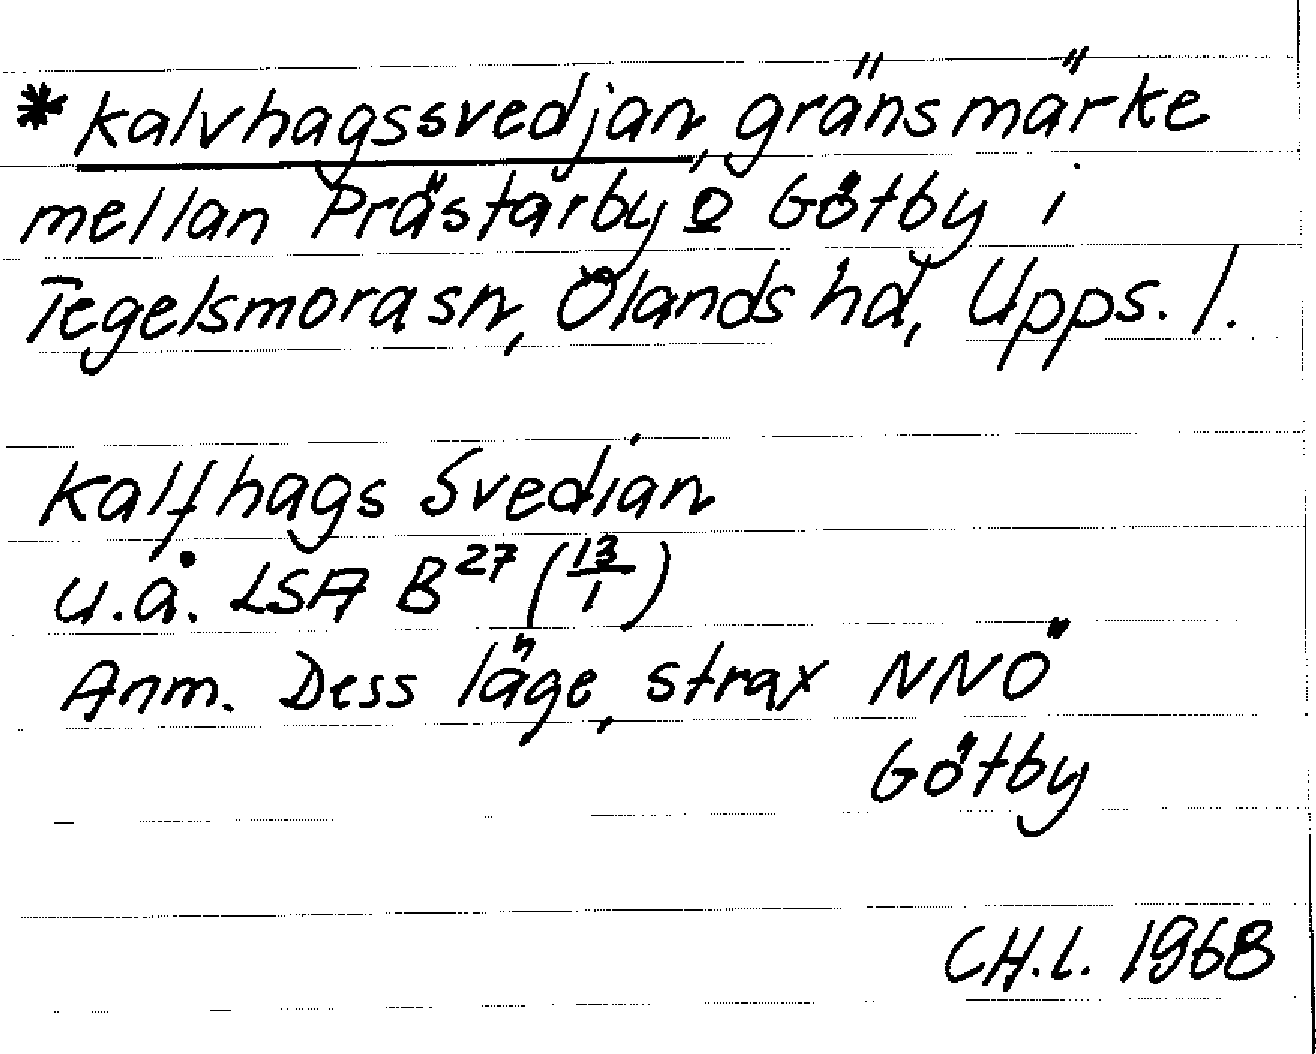 * Kalvhagssvedjan, gränsmärke
mellan Prästärby o Götby i
Tegelsmora sn, Ölands hd, Upps. l.
Kalfhags Svedian
u.å. LSA B²⁷ (13/1)
Anm. Dess läge, strax NNÖ
Götby
CH.L. 1968